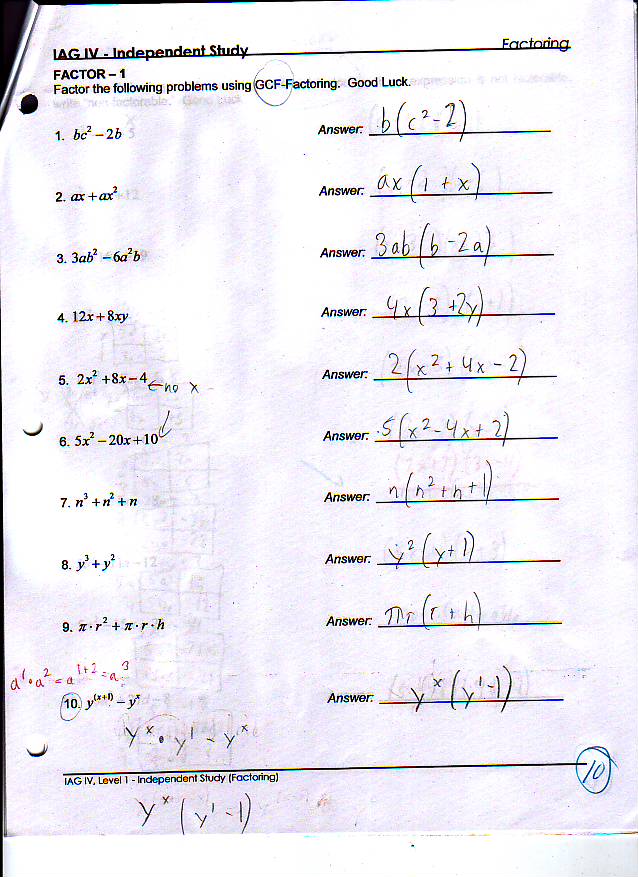 IAG IV - Independent Study Factoring
FACTOR – 1
Factor the following problems using GCF-Factoring. Good Luck.
1. bc² – 2b Answer: b(c²-2)
2. ax + ax² Answer: ax(1 + x)
3. 3ab² – 6a²b Answer: 3ab(b -2a)
4. 12x + 8xy Answer: 4x(3 +2y)
5. 2x² +8x – 4 ←no x Answer: 2(x² + 4x - 2)
6. 5x² – 20x +10 Answer: 5(x² - 4x + 2)
7. n³ + n² + n Answer: n(n² + n + 1)
8. y³ + y² Answer: y²(y+1)
9. π·r² + π·r·h Answer: πr(r + h)
a¹·a² = a¹⁺² = a³
10. y⁽ˣ⁺¹⁾ – yˣ Answer: yˣ(y¹-1)
yˣ • y¹ - yˣ
10
IAG IV, Level 1 - Independent Study (Factoring)
yˣ(y¹-1)